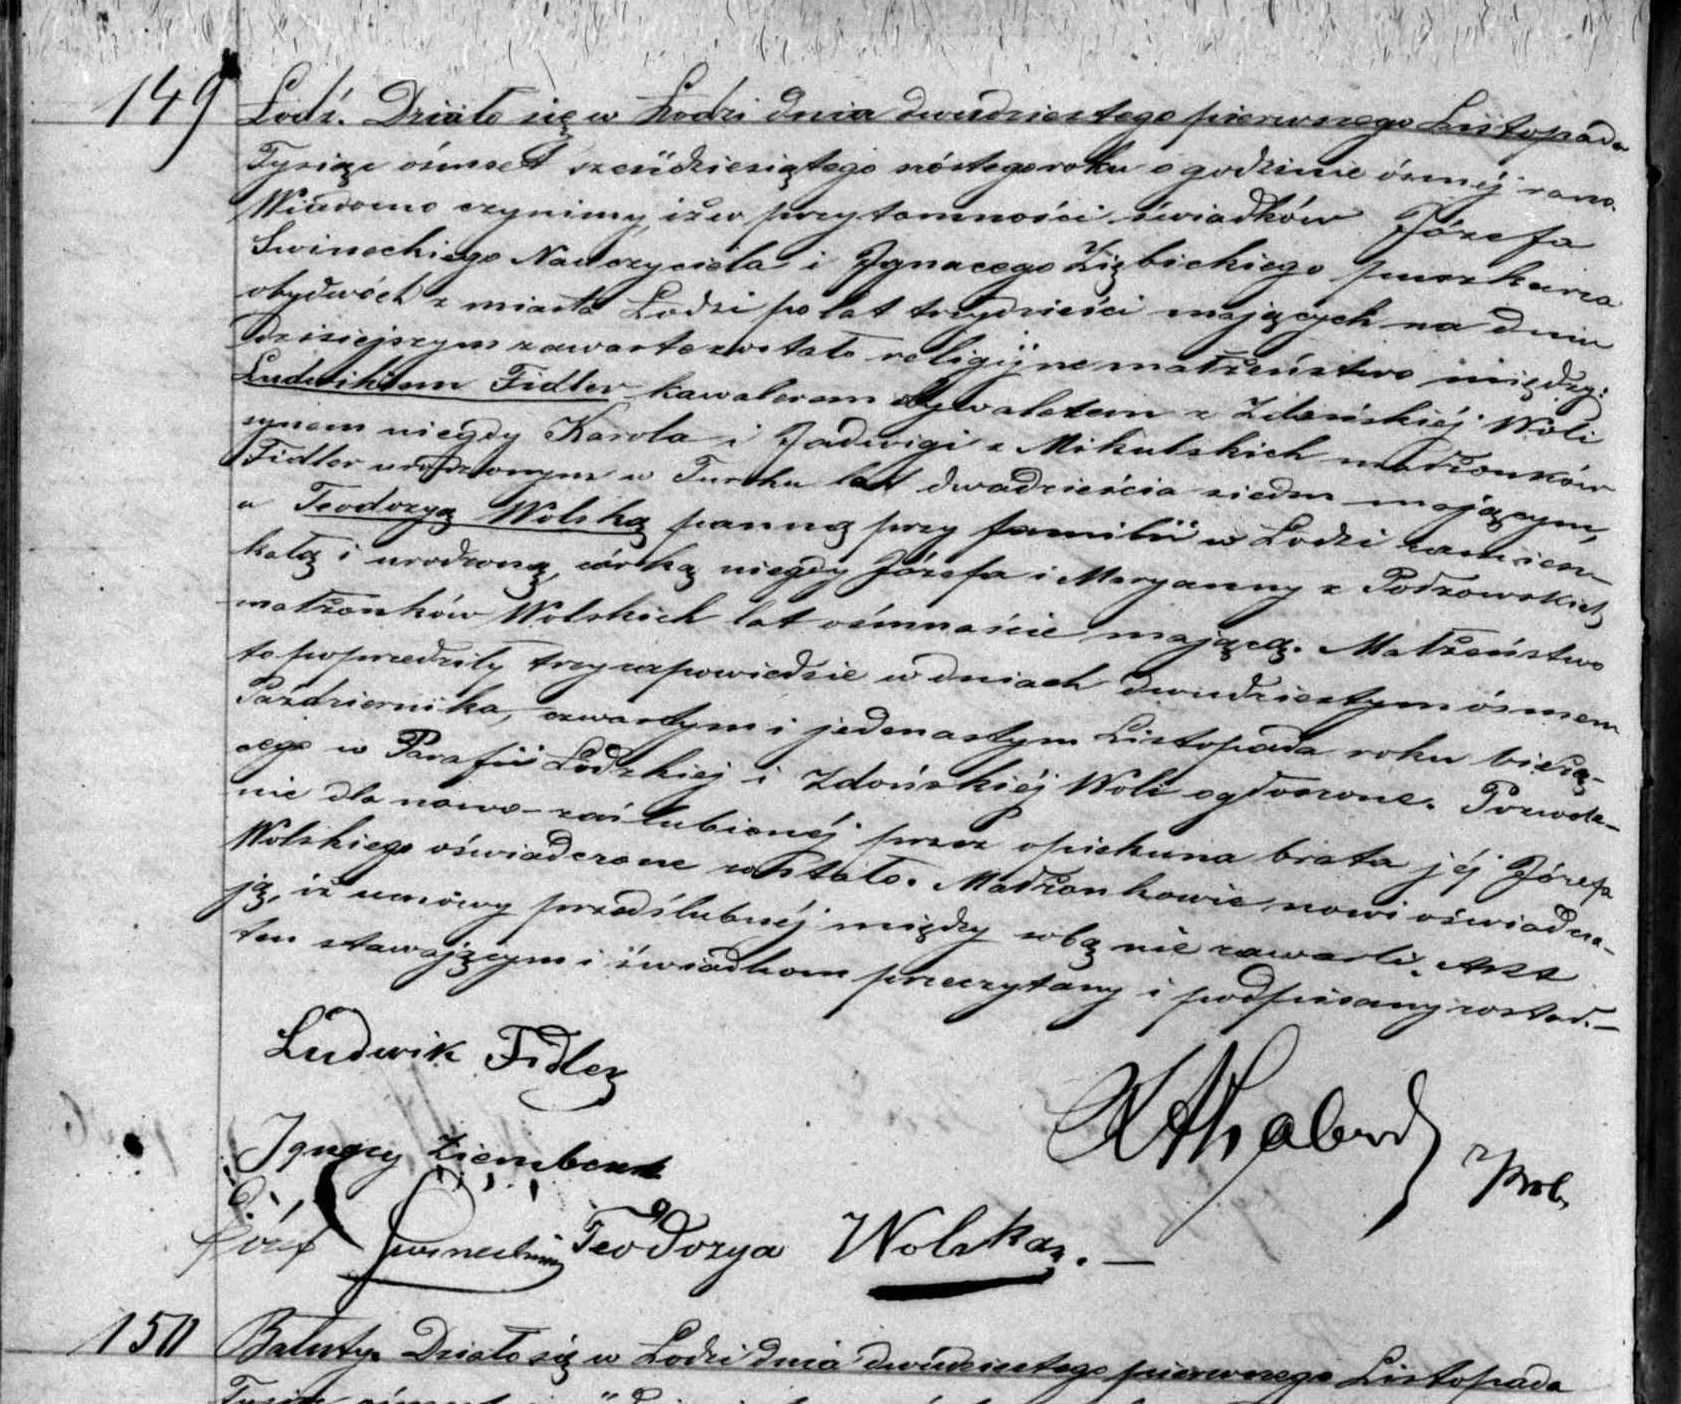 149 Łodź. Działo się w Łodzi dnia dwudziestego pierwszego Listopada
Tysiąc ośmset sześdziesiątego szóstego roku o godzinie ósméj rano.
Wiadomo czynimy, iż w przytomności świadków Józefa
Swineckiego Nauczyciela i Ignacego Ziębickiego puszkarza
obydwóch z miasta Łodzi po lat trzydzieści mających na dniu
dzisiejszym zawarte zostało religijne małżeństwo między:
Ludwikiem Fidler kawalerem obywatelem z Zduńskiéj Woli
synem niegdy Karola i Jadwigi z Mikulskich małżonków
Fidler urodzonym w Turku lat dwadzieścia siedm mającym,
a Teodozyą Wolską panną przy familii w Łodzi zamiesz-
kałą i urodzoną, córką niegdy Józefa i Maryanny z
małżonków Wolskich lat ośmnaście mającą. Małżeństwo
to poprzedziły trzy zapowiedzie w dniach dwudziestym ósmem
Października, czwartym i jedenastym Listopada roku bieżą-
cego w Parafii Łódzkiej i Zduńskiéj Woli ogłoszone. Pozwole-
nie dla nowo-zaślubionéj przez opiekuna brata jéj Józefa
Wolskiego oświadczone zostało. Małżonkowie nowi oświadcza-
ją, iż umowy przedślubnéj między sobą nie zawarli. Akt
ten stawającym i świadkom przeczytany i podpisany został.—
Ludwik Fidler
Ignacy
Józef Swinecki Teodozya Wolska. —
Prob.
150 Bałuty. Działo się w Łodzi dnia dwudziestego pierwszego Listopada
Tysiąc ośmset